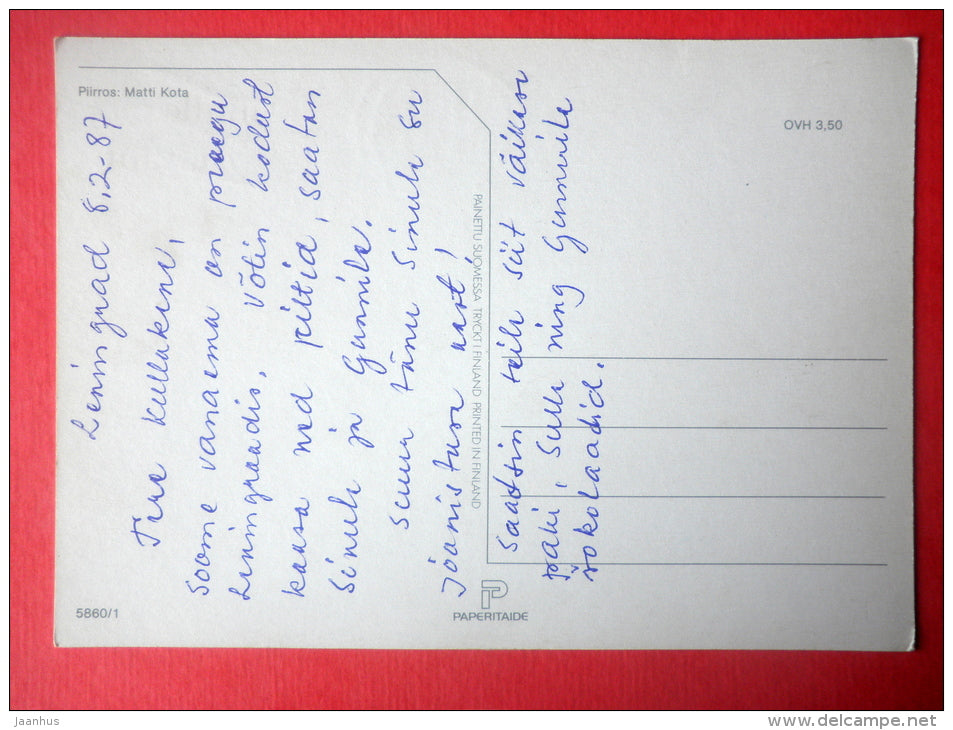 Piirros: Matti Kota
OVH 3,50
Leningrad 8.2-87
Tiae kullakene,
Soome vanaema on praegu
Leningraadis. Võtin kodust
kaasa ned piltid, saatan
Sinule ja Gunnile.
Suur tänu Sinule su
joonistuse eest!
Saatsin teile siit väikese
paki Sulle ning Gunnile
šokolaadid.
PAINETTU SUOMESSA TRYCKT I FINLAND PRINTED IN FINLAND
5860/1
PAPERITAIDE
Jaanhus
www.delcampe.net